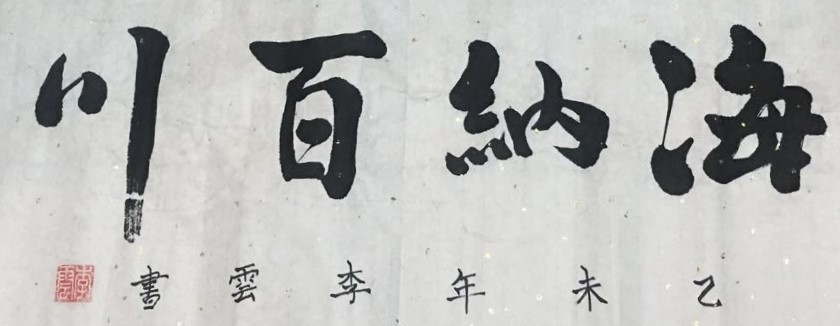 海納百川
乙未年李雲書
李雲